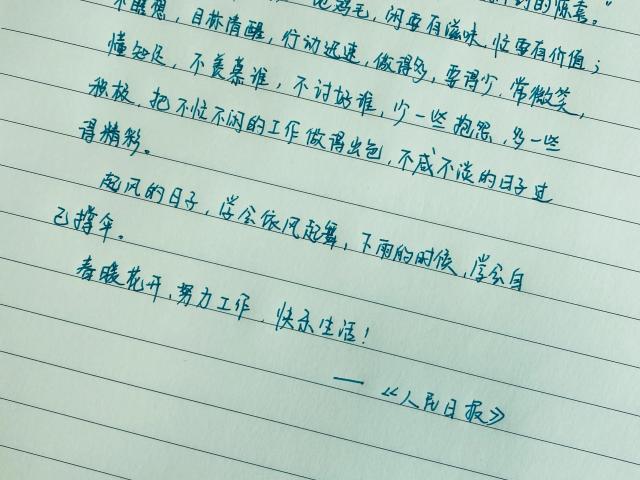 鸡毛，闲要有滋味，忙要有价值；
目标清醒，行动迅速，做得多，要得少，常微笑，
懂知足，不羡慕谁，不讨好谁，少一些抱怨，多一些
积极，把不忙不闲的工作做得出色，不咸不淡的日子过
得精彩。
起风的日子，学会依风起舞，下雨的时候，学会自
己撑伞。
春暖花开，努力工作，快乐生活！
——《人民日报》